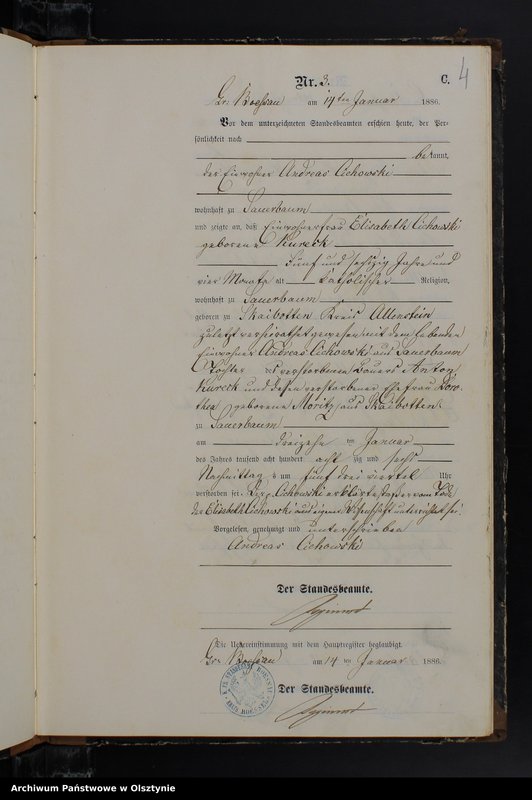 4
Nr. 3.
C.
Gr. Boessau am 14ten Januar 1886.
Vor dem unterzeichneten Standesbeamten erschien heute, der Per-
sönlichkeit nach
bekannt,
der Einwohner Andreas Cichowski
wohnhaft zu Sauerbaum
und zeigte an, daß Einwohnerfrau Elisabeth Cichowski
geborene Kureck
fünf und sechszig Jahre und
vier Monate alt katholischer Religion,
wohnhaft zu Sauerbaum
geboren zu Skaibotten Kreis Allenstein
zuletzt verheirathet gewesen mit dem lebenden
Einwohner Andreas Cichowski aus Sauerbaum
Tochter des verstorbenen Bauers Anton
Kureck und dessen verstorbener Ehefrau Doro-
thea geborene Moritz aus Skaibotten
zu Sauerbaum
am dreizehn ten Januar
des Jahres tausend acht hundert acht zig und sechs
Nachmittag s um fünf drei viertel Uhr
verstorben sei. Der Cichowski erklärte, daß er vom Tode
der Elisabeth Cichowski aus eigener Wissenschaft unterrichtet sei
Vorgelesen, genehmigt und unterschrieben
Andreas Cichowski
Der Standesbeamte.
Die Uebereinstimmung mit dem Hauptregister beglaubigt.
Gr. Boessau am 14 ten Januar 1886.
Der Standesbeamte.
Archiwum Państwowe w Olsztynie